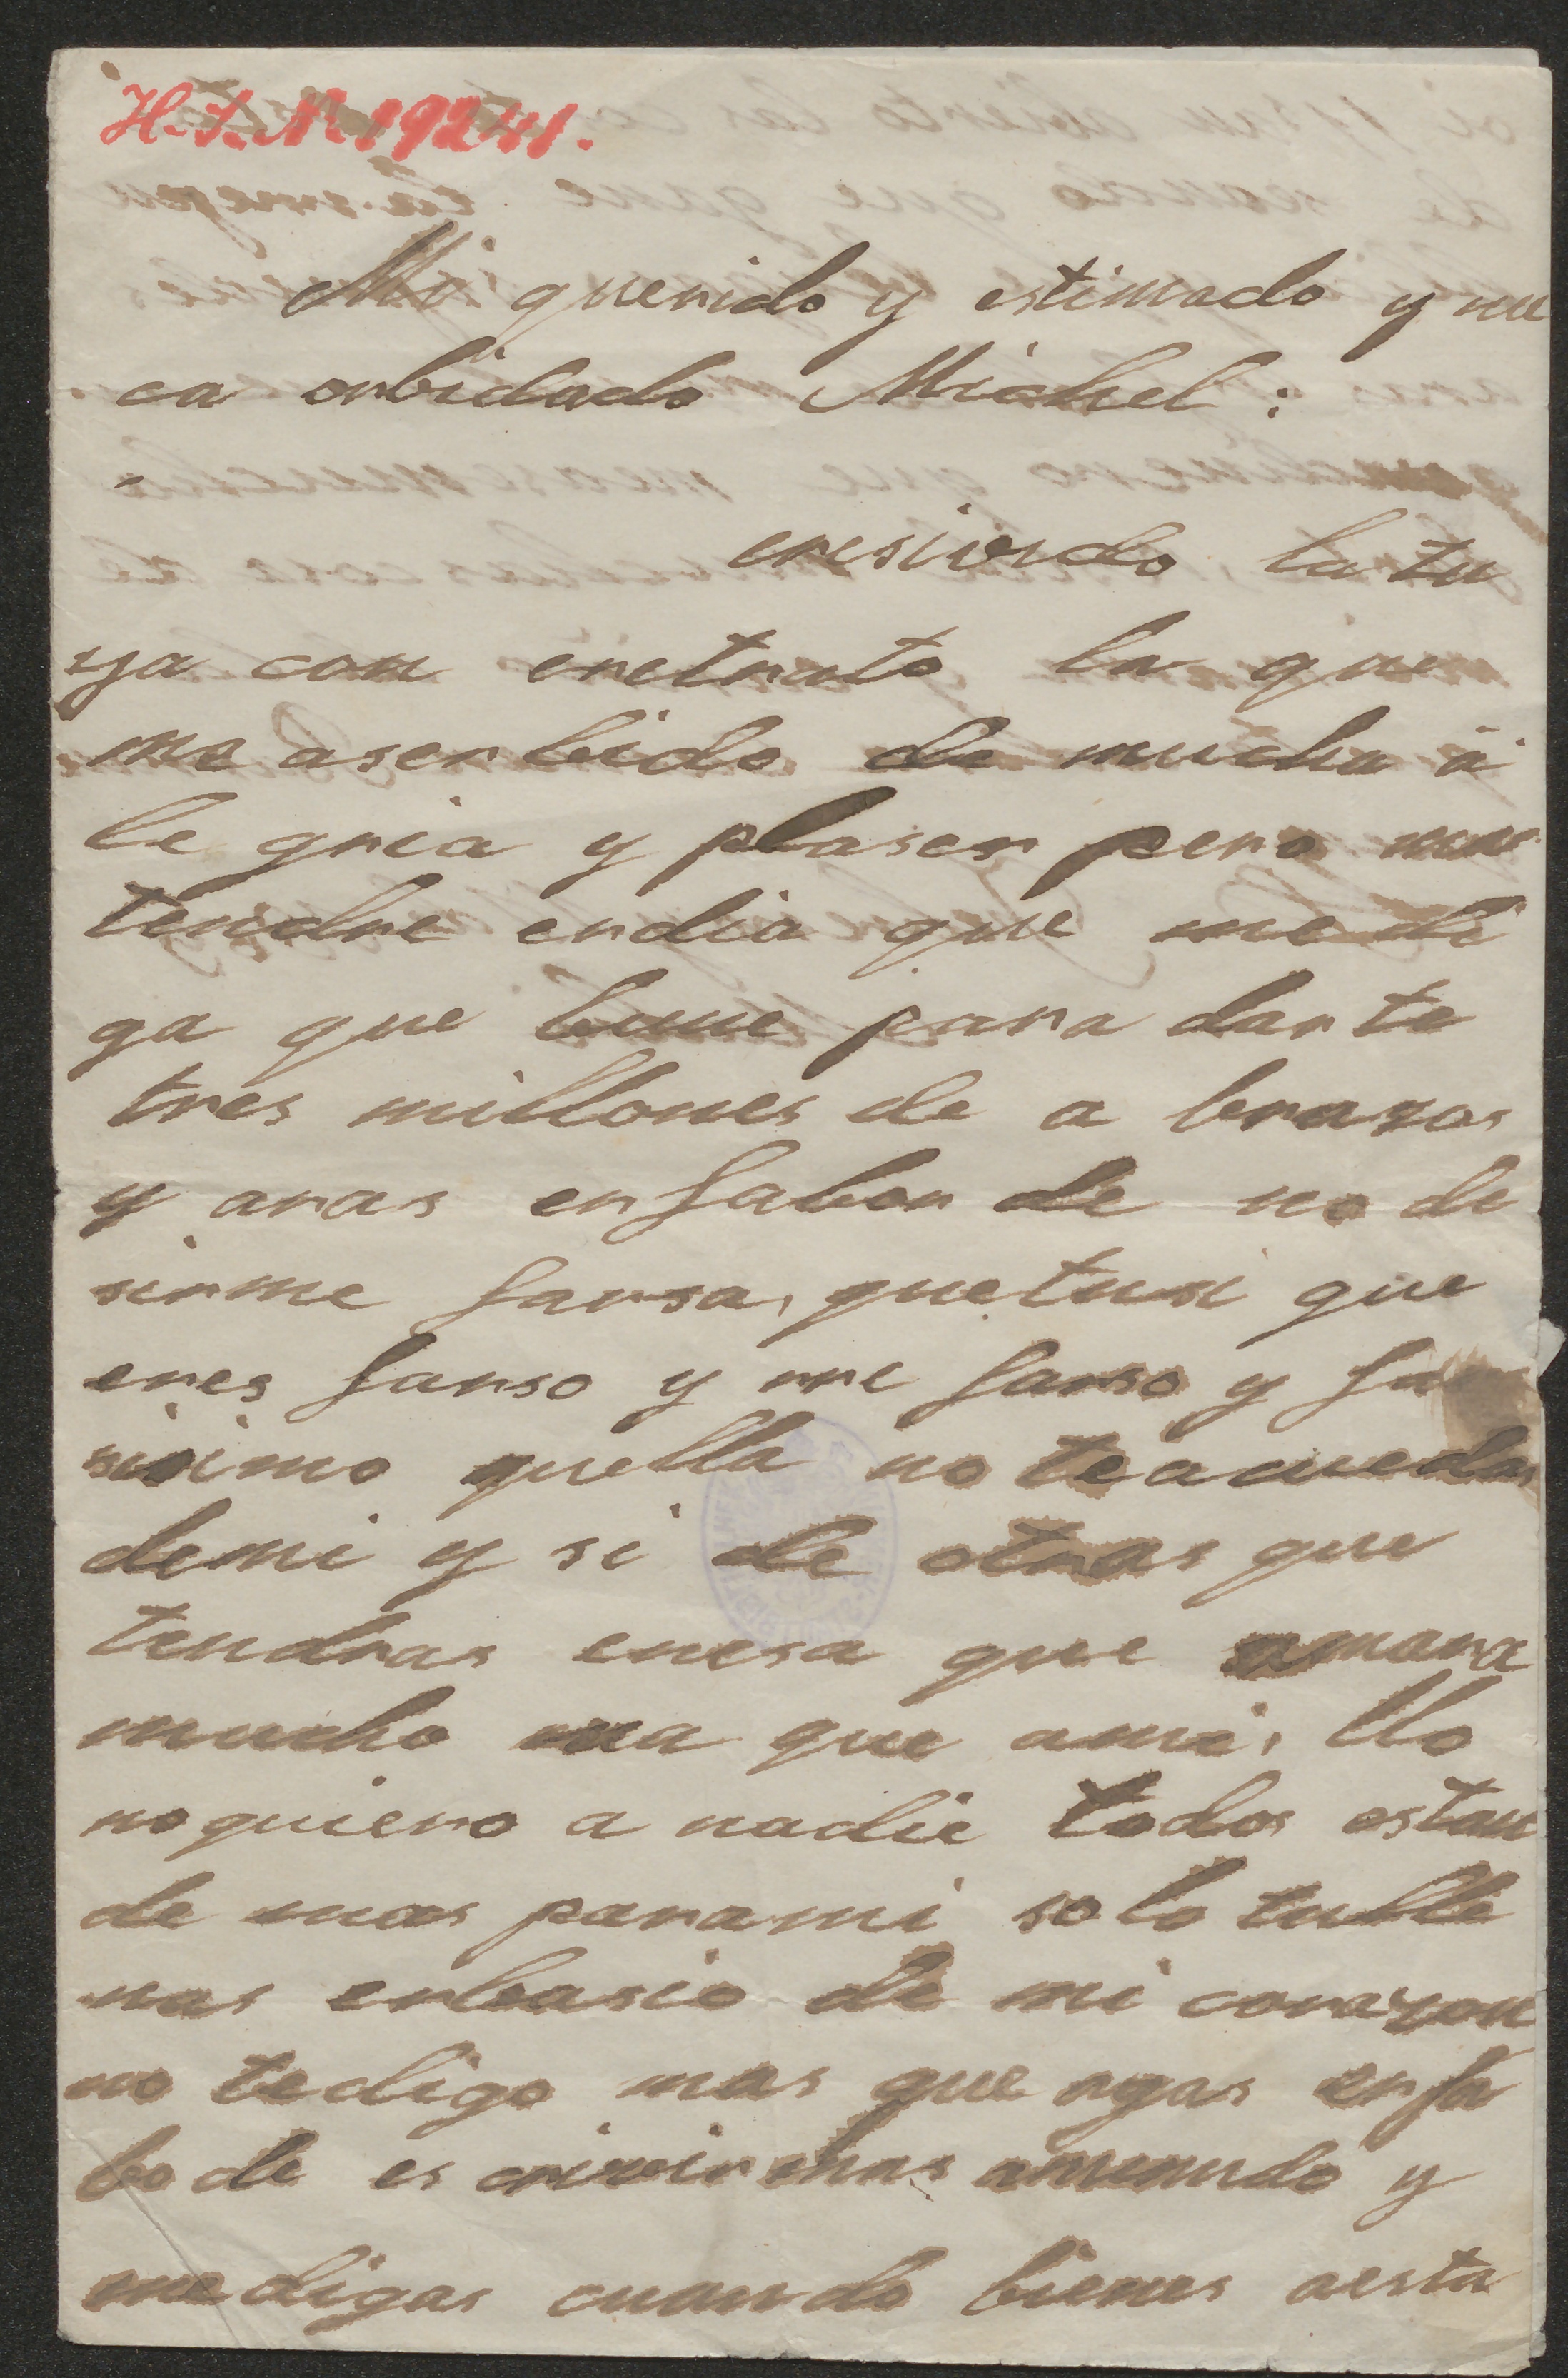 H. I. N. 19241.
Mi querido y estimado y nun
ca orbidado Michel:
eresivido la tu
ya con eretrato la que
me aserbido de mucha a
le gria y plaser pero cuan
tendre erdia que me di
ga que biene para darte
tres millones de a brazos
y aras erfabor de no de
sirme farsa, quetusi que
eres farso y rre farso y far
sisimo quella no teacuedas
demi y si de otras que
tendras enesa que amara
mucho ma que ami, llo
noquiero a nadie todos estan
de mas parami solo tulle
nas erbasio de mi corazon
no tedigo mas que agas erfa
bo de es crivir mas amenudo y
medigas cuando bienes aesta